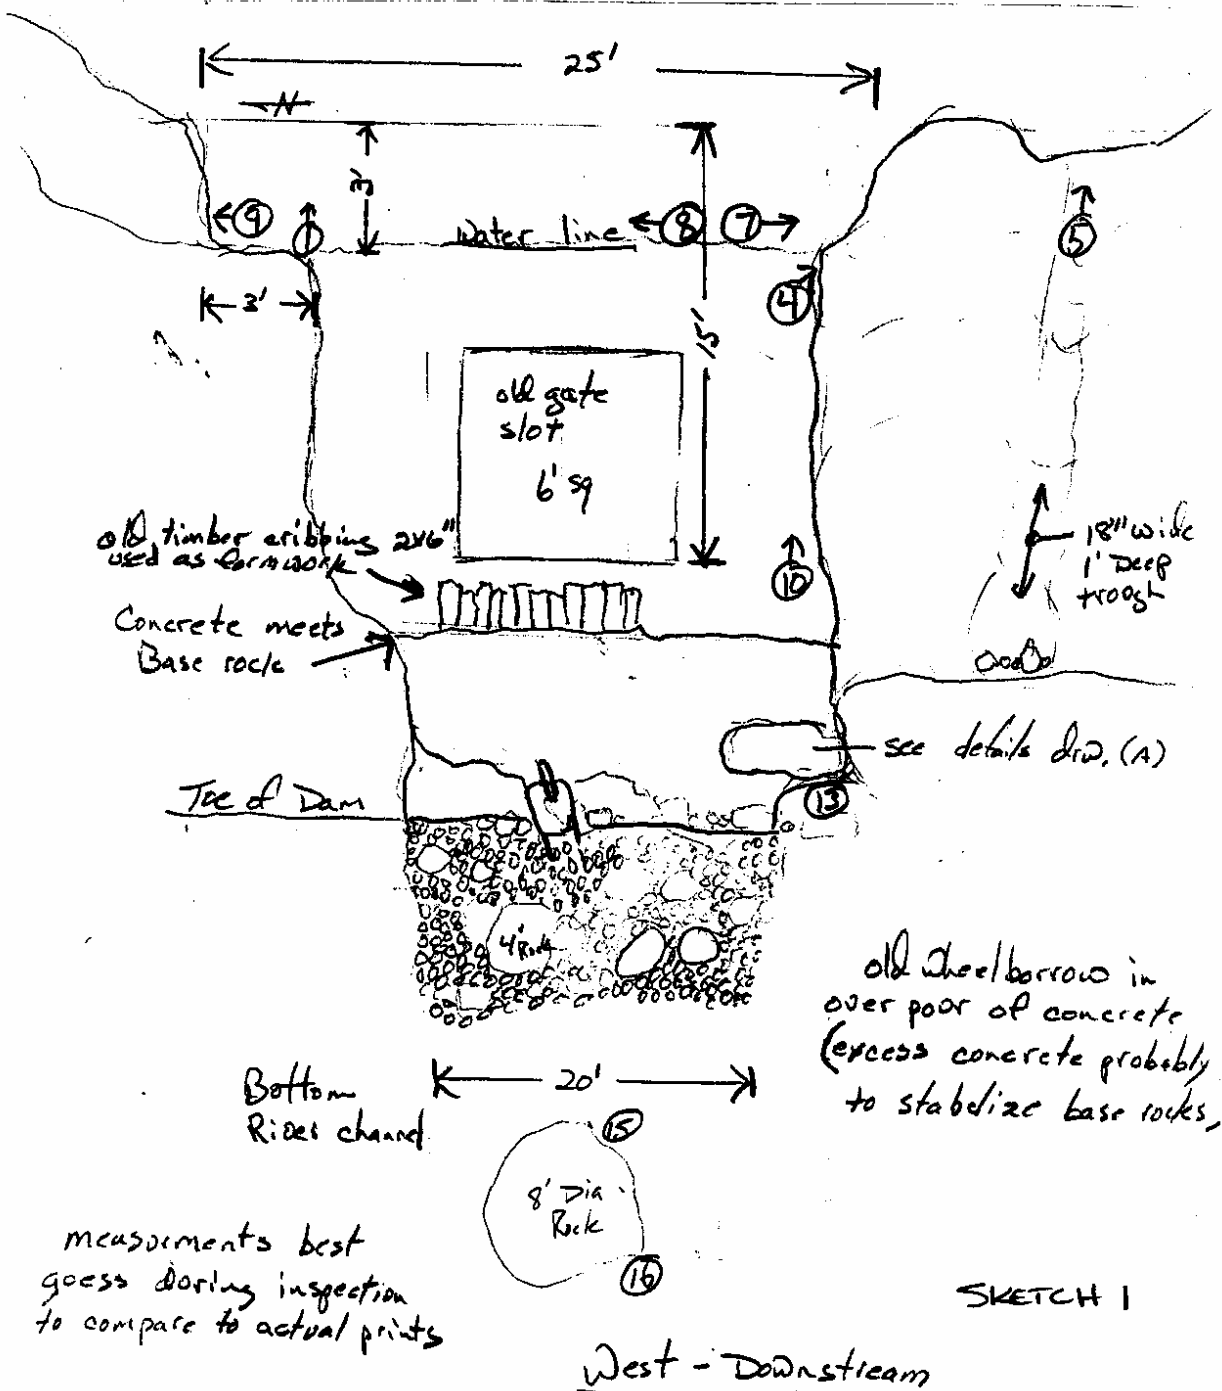 25'
N
3'
9
1
Water line
8
7
5
3'
4
15'
old gate
slot
6' sq
old timber cribbing 2x6"
used as formwork
10
18" wide
1' Deep
trough
Concrete meets
Base rock
see details drw. (A)
Toe of Dam
13
4' Rock
old wheelborrow in
over poor of concrete
(excess concrete probably
to stabelize base rocks,
Bottom
River channel
20'
15
8' Dia
Rock
16
measurments best
guess during inspection
to compare to actual prints
SKETCH 1
West - Downstream